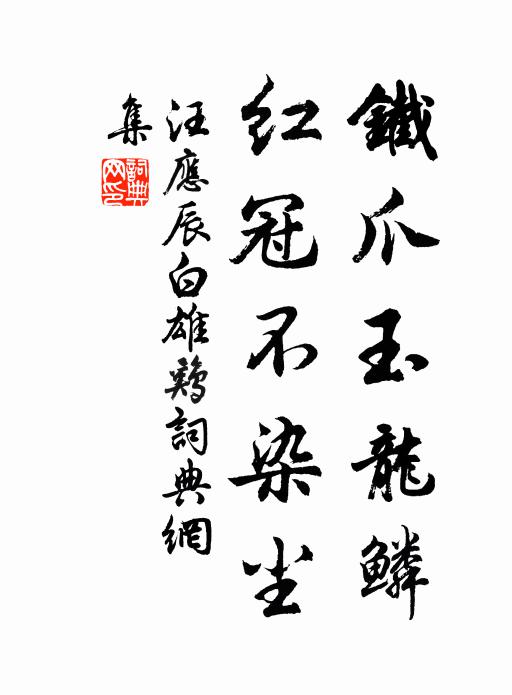 鐵爪玉龍鱗
紅冠不染尘
汪應辰白雄鷄詞典網
集
詞典
网印